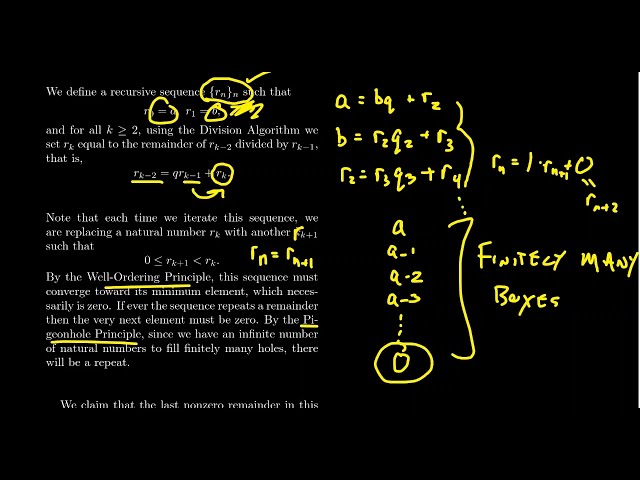 We define a recursive sequence {rₙ}ₙ such that
r₀ = a, r₁ = b,
and for all k ≥ 2, using the Division Algorithm we
set rₖ equal to the remainder of rₖ₋₂ divided by rₖ₋₁,
that is,
rₖ₋₂ = qrₖ₋₁ + rₖ.
Note that each time we iterate this sequence, we
are replacing a natural number rₖ with another rₖ₊₁
such that
0 ≤ rₖ₊₁ < rₖ.
By the Well-Ordering Principle, this sequence must
converge toward its minimum element, which neces-
sarily is zero. If ever the sequence repeats a remainder
then the very next element must be zero. By the Pi-
geonhole Principle, since we have an infinite number
of natural numbers to fill finitely many holes, there
will be a repeat.
We claim that the last nonzero remainder in this
rₙ = rₙ₊₁
a = bq + r₂
b = r₂q₂ + r₃
r₂ = r₃q₃ + r₄
a
a-1
a-2
a-3
0
rₙ = 1·rₙ₊₁ + 0
=
rₙ₊₂
FINITELY MANY
BOXES